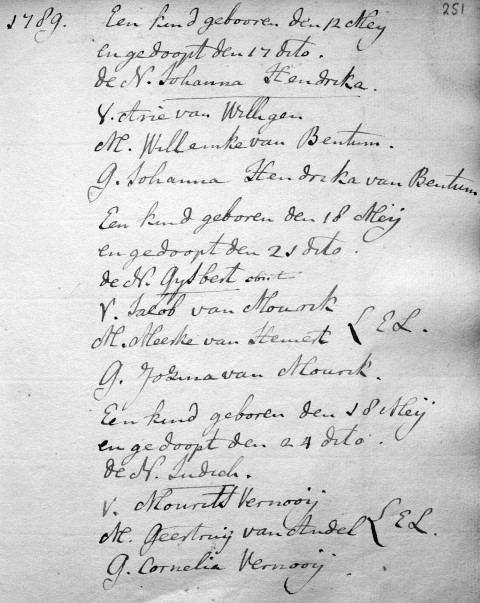 251
1789. Een kind gebooren den 12 Meij
en gedoopt den 17 dito.
de N. Johanna Hendrika.
V. Arie van Willigen
M. Willemke van Bentum.
G. Johanna Hendrika van Bentum
Een kind geboren den 18 Meij
en gedoopt den 21 dito.
de N. Gysbert
V. Jacob van Mourik
M. Meerke van Hemert } E L.
G. Jozina van Mourik.
Een kind geboren den 18 Meij
en gedoopt den 24 dito.
de N. Judich.
V. Mourits Vernooij
M. Geertruij van Andel } E L.
G. Cornelia Vernooij.